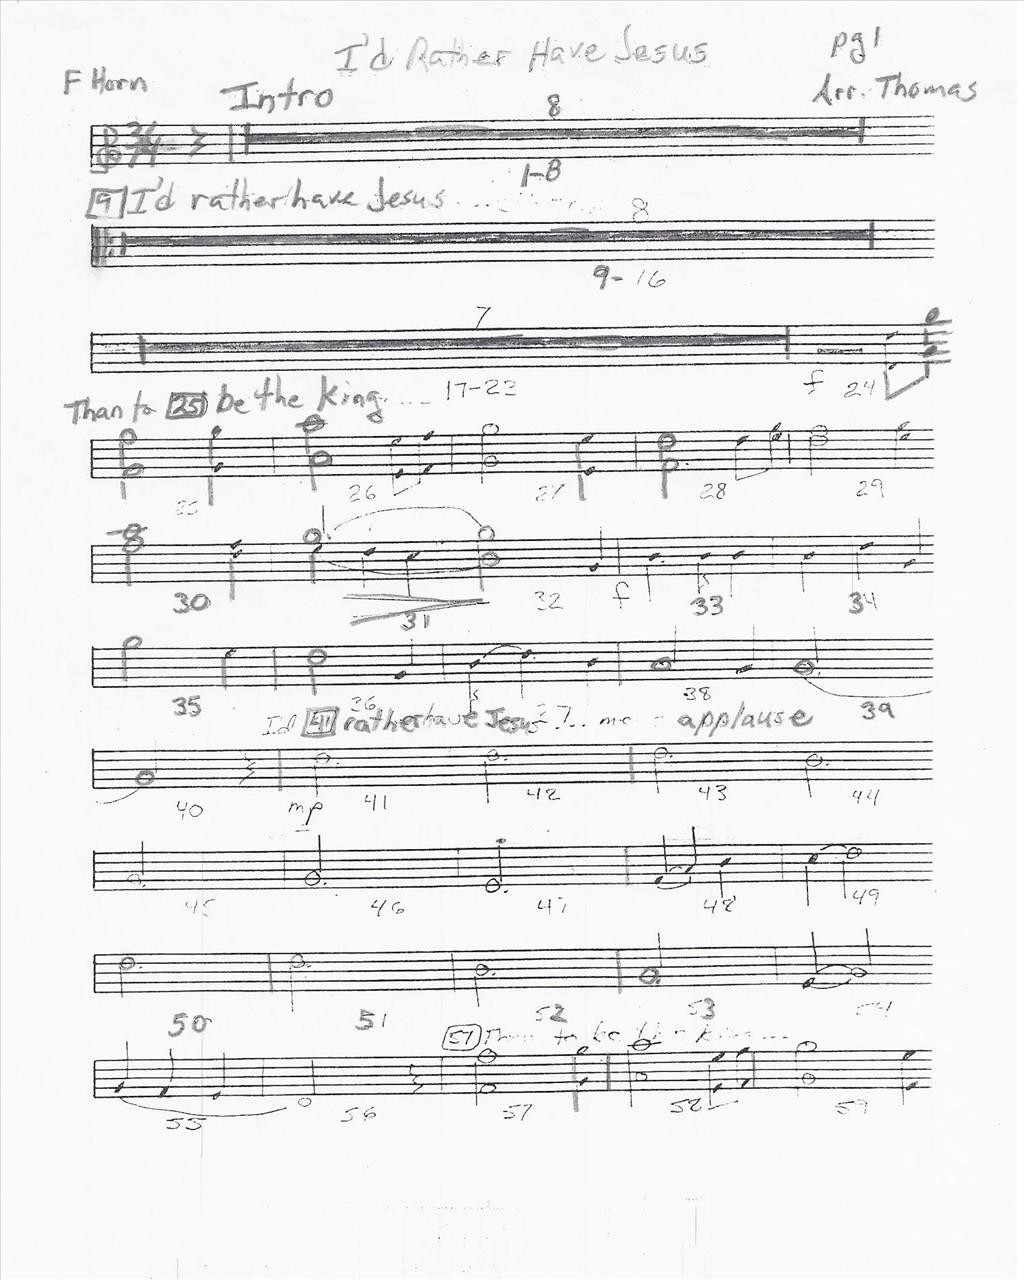 I'd Rather Have Jesus
pg 1
F Horn
Intro
Arr. Thomas
3 4
7 4
8
1-8
9 I'd rather have Jesus ....
8
9-16
7
17-23
f 24
Than to 25 be the King....
25 26 27 28 29
30 31 32 f 33 34
35 36 37 38 39
I'd 41 rather have Jesus ... me - applause
40 mp 41 42 43 44
45 46 47 48 49
50 51 52 53 54
57 Than to be the king...
55 56 57 58 59